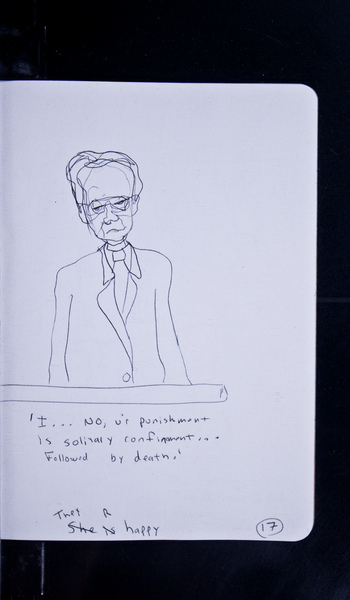 'I... NO, ur punishment
is solirary confinment...
Followed by death.'
They R
She is happy
17